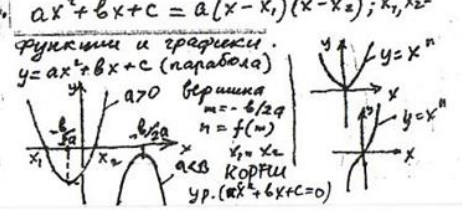 ax²+bx+c = a(x-x₁)(x-x₂); x₁,x₂-
Функции и графики.
y=ax²+bx+c (парабола)
y
a>0
вершина
-b/2a
m=-b/2a
-b/2a
n=f(m)
x₁
x₂
x
x₁, x₂
a<0
корни
ур. (ax²+bx+c=0)
y
y=xⁿ
x
y
y=xⁿ
x